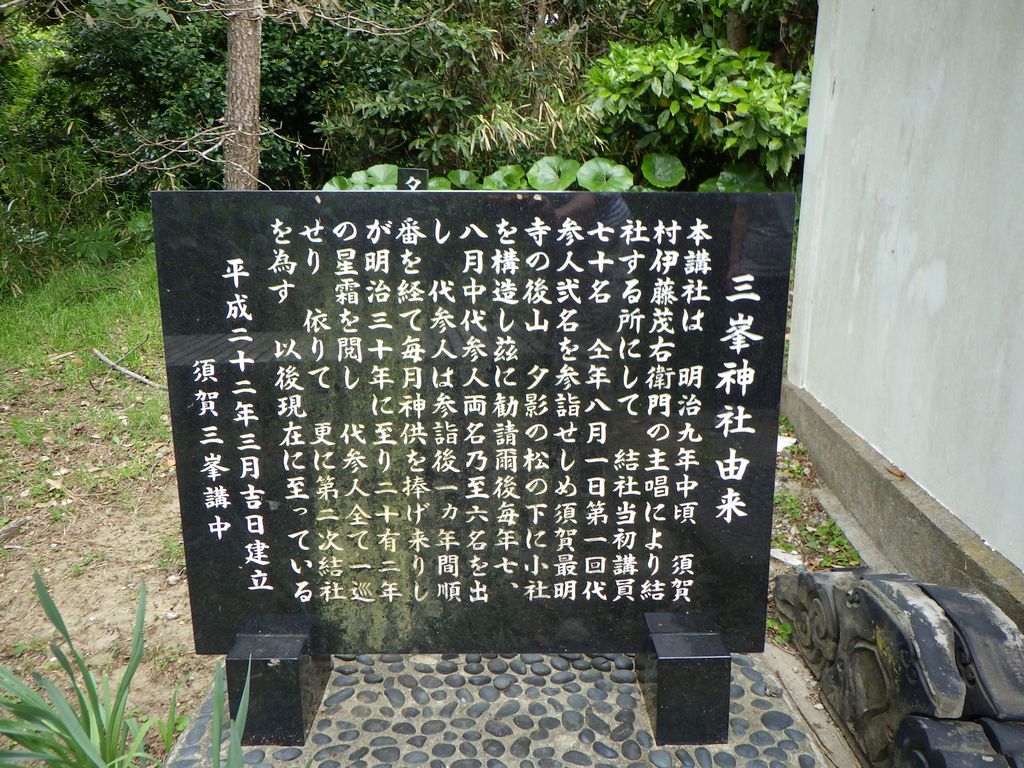 三峯神社由来
本講社は　明治九年中頃　須賀
村伊藤茂右衛門の主唱により結
社する所にして　結社当初講員
七十名　仝年八月一日第一回代
参人弐名を参詣せしめ須賀最明
寺の後山　夕影の松の下に小社
を構造し茲に勧請爾後毎年七、
八月中代参人両名乃至六名を出
し　代参人は参詣後一ヵ年間順
番を経て毎月神供を捧げ来りし
が明治三十年に至り二十有二年
の星霜を閲し　代参人全て一巡
せり　依りて　更に第二次結社
を為す　以後現在に至っている
平成二十二年三月吉日建立
須賀三峯講中
夕